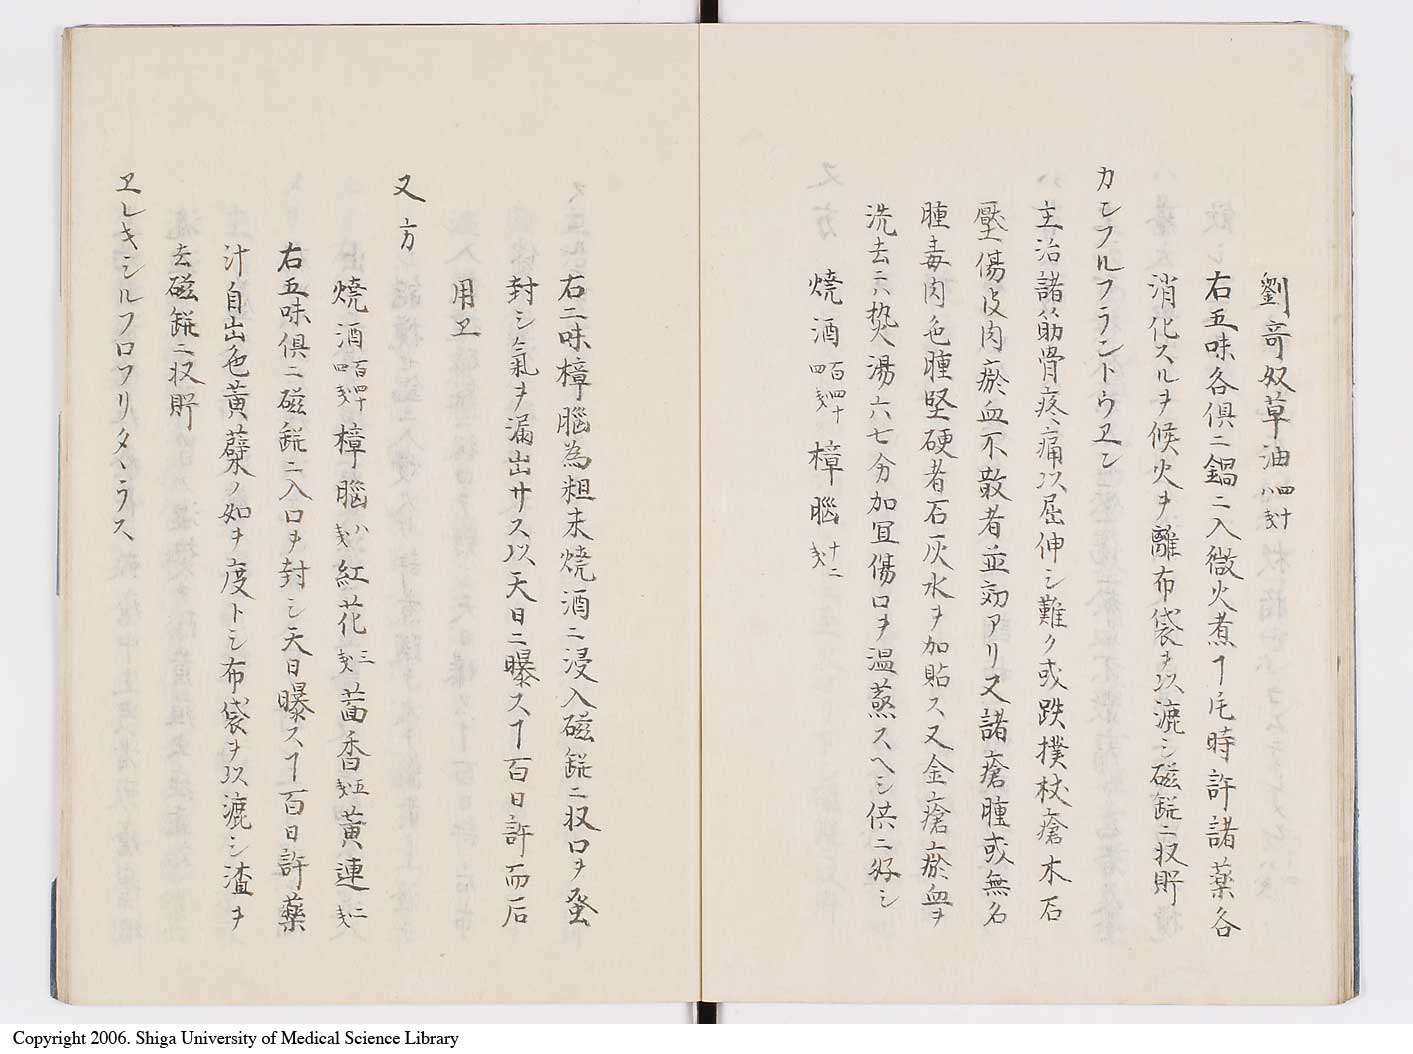 劉寄奴草油 四十八戔
右五味各俱ニ鍋ニ入微火煮ヿ片時許諸薬各
消化スルヲ候火ヲ離布袋ヲ以漉シ磁鋋ニ収貯
カンフルフラントウヱン
主治諸筋骨疼痛以屈伸シ難ク或跌撲杖瘡木石
壓傷皮肉瘀血不散者並効アリ又諸瘡腫或無名
腫毒肉色腫堅硬者石灰水ヲ加貼ス又金瘡瘀血ヲ
洗去ニハ熱湯六七分加冝傷口ヲ温蒸スヘシ供ニ好シ
焼酒 百四十四戔 樟腦 十二戔
右二味樟腦為粗末焼酒ニ浸入磁鋋ニ収口ヲ蛍
封シ氣ヲ漏出サス以天日ニ曝スヿ百日許而后
用ヱ
又方
焼酒 百四十四戔 樟腦 八戔 紅花 三戔 茴香 五戔 黄連 二戔
右五味俱ニ磁鋋ニ入口ヲ封シ天日曝スヿ百日許薬
汁自出色黄蘗ノ如ヲ度トシ布袋ヲ以漉シ渣ヲ
去磁鋋ニ収貯
ヱレキシルフロフリタヽラス
Copyright 2006. Shiga University of Medical Science Library